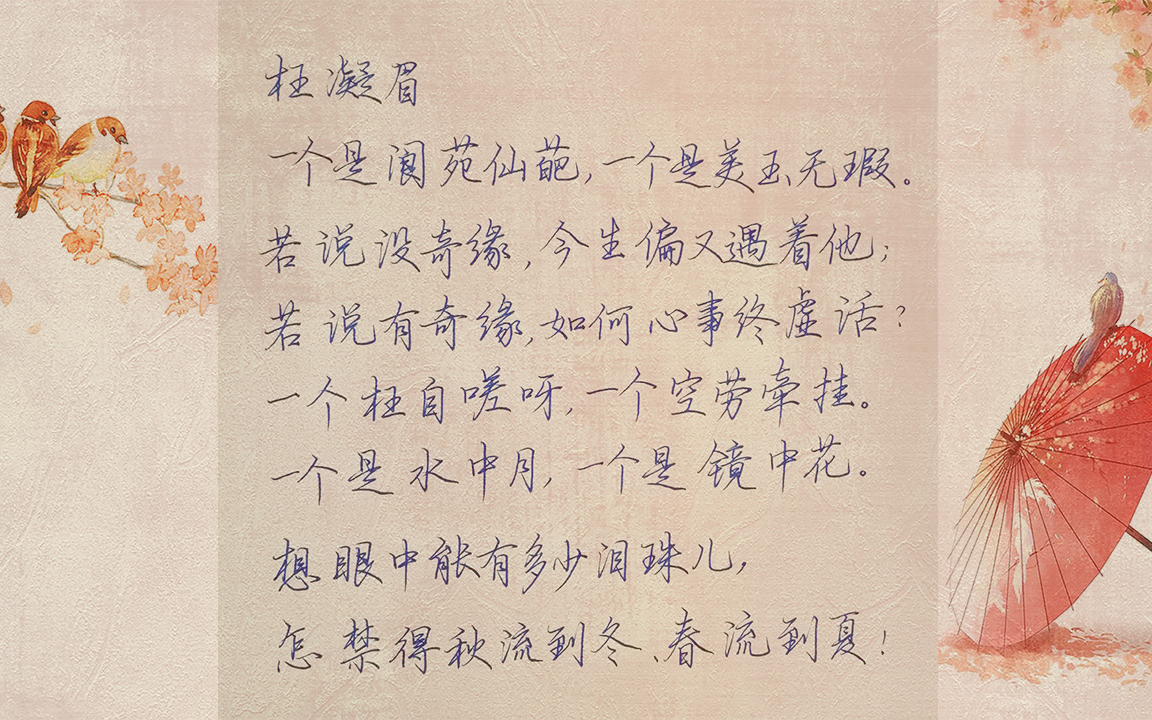 枉凝眉
一个是阆苑仙葩，一个是美玉无瑕。
若说没奇缘，今生偏又遇着他；
若说有奇缘，如何心事终虚话？
一个枉自嗟呀，一个空劳牵挂。
一个是水中月，一个是镜中花。
想眼中能有多少泪珠儿，
怎禁得秋流到冬、春流到夏！